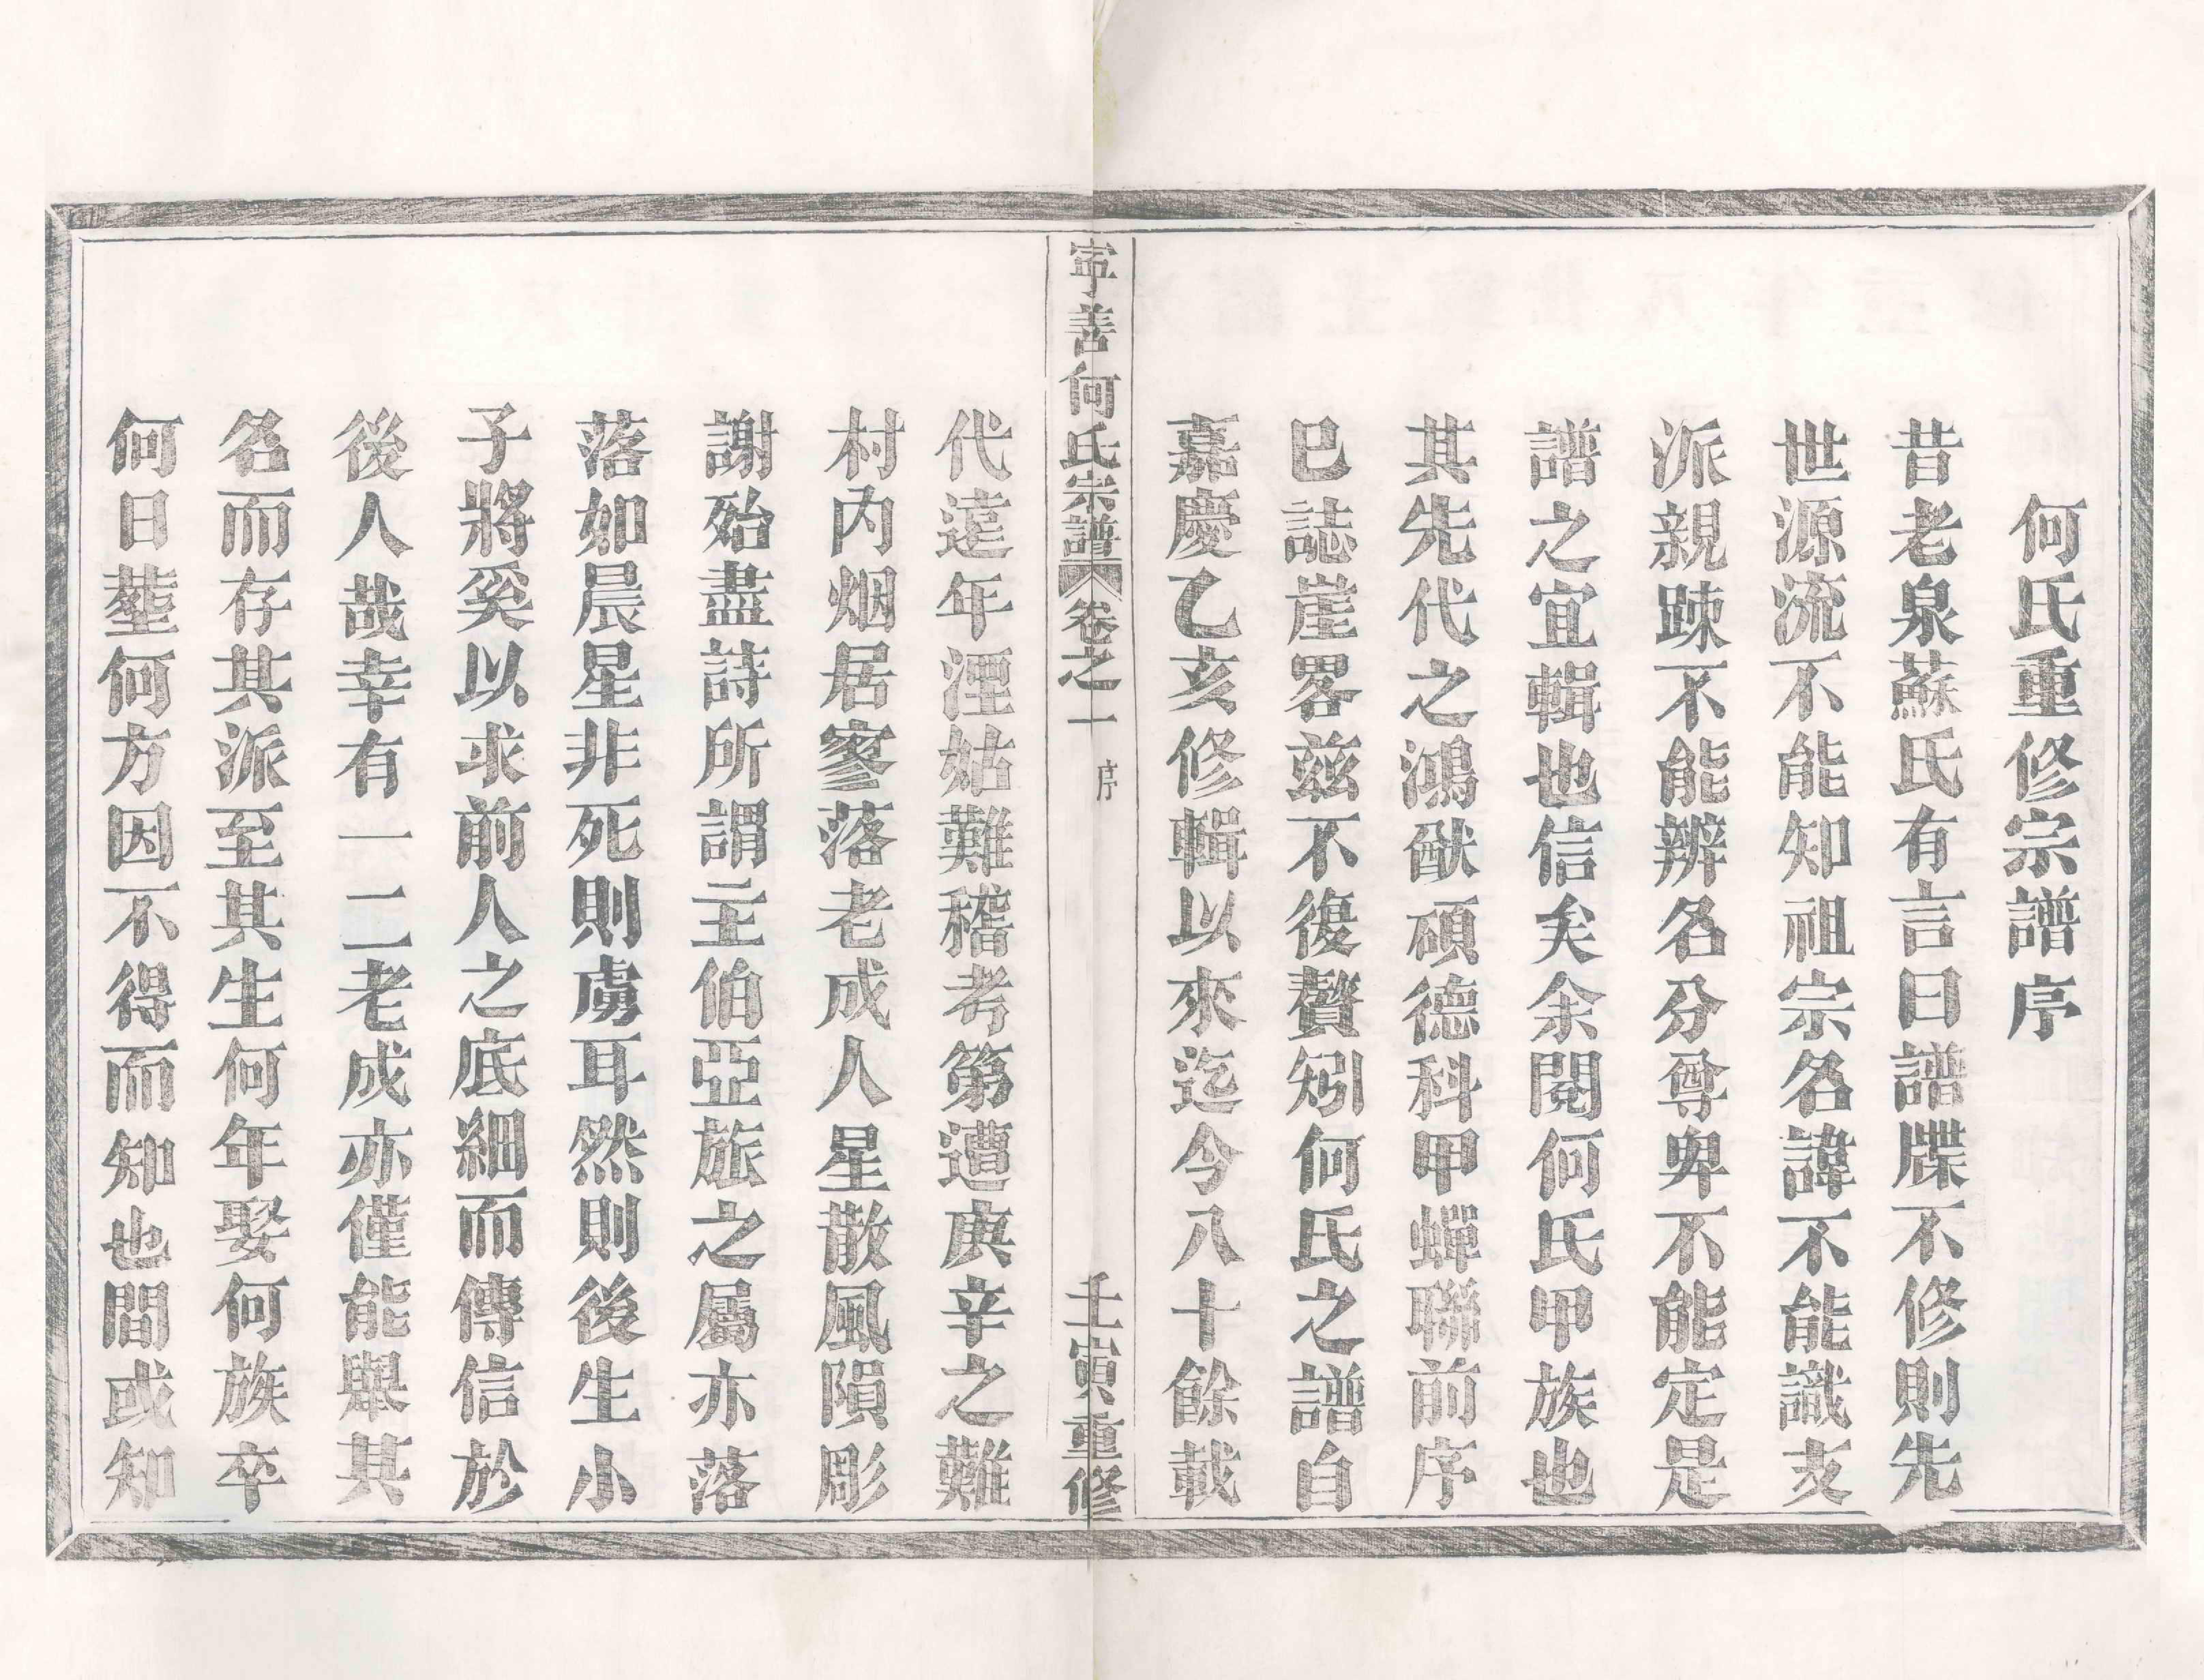 何氏重修宗譜序
昔老泉蘇氏有言曰譜牒不修則先
世源流不能知祖宗名諱不能識支
派親踈不能辨名分尊卑不能定是
譜之宜輯也信矣余閱何氏甲族也
其先代之鴻猷碩德科甲蟬聯前序
巳誌崖畧兹不復贅矧何氏之譜自
嘉慶乙亥修輯以來迄今八十餘載
寧善何氏宗譜 卷之一 序 壬寅重修
代遠年湮姑難稽考第遭庚辛之難
村内烟居寥落老成人星散風隕彫
謝殆盡詩所謂主伯亞旅之屬亦落
落如晨星非死則虜耳然則後生小
子將奚以求前人之底細而傳信於
後人哉幸有一二老成亦僅能舉其
名而存其派至其生何年娶何族卒
何日塟何方因不得而知也間或知